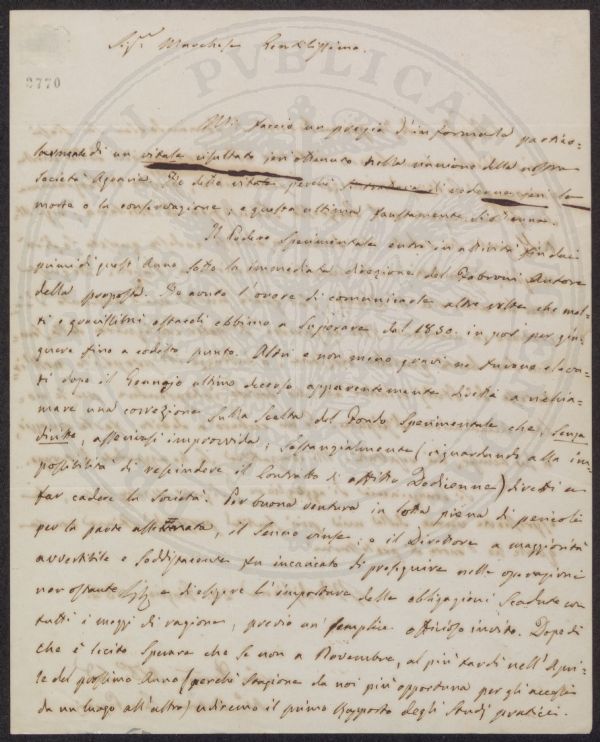 Sig.r Marchese Gentilissimo.
2770
Mi faccio un pregio d'informarla partico-
larmente di un vitale risultato jeri ottenuto nella riunione della nostra
Società Agraria. Ho detto vitale perchè si trattava di vederne jeri la
morte o la conservazione, e quest'ultima faustamente si ottenne.
Il Podere sperimentale entrò in attività fin dai
primi di quest'Anno sotto la immediata direzione del Fabroni Autore
della proposta. Ho avuto l'onore di comunicarle altre volte che mol-
ti e gravissimi ostacoli ebbimo a superare dal 1830. in poi per giu-
gnere fino a codesto punto. Altri e non meno gravi ne furono eleva-
ti dopo il Gennajo ultimo decorso apparentemente diretti a richia-
mare una correzione sulla scelta del Fondo Sperimentale che, senza
diritto, asserivasi improvvida; sostanzialmente (riguardando alla im-
possibilità di rescindere il Contratto di affitto) diretti a
far cadere la Società. Per buona ventura in lotta piena di pericoli
per la parte, il Senno vinse; e il Direttore a maggiorità
avvertibile e soddisfacente fu incaricato di proseguire nelle operazioni
non ostante e di esigere l'importare delle obbligazioni scadute con
tutti i mezzi di ragione, previo un semplice officioso invito. Dopo di
che è lecito sperare che se non a Novembre, al più tardi nell'Apri-
le del prossimo Anno (perchè stagione da noi più opportuna per gli accessi
da un luogo all'altro) udiremo il primo Rapporto degli Studj pratici.